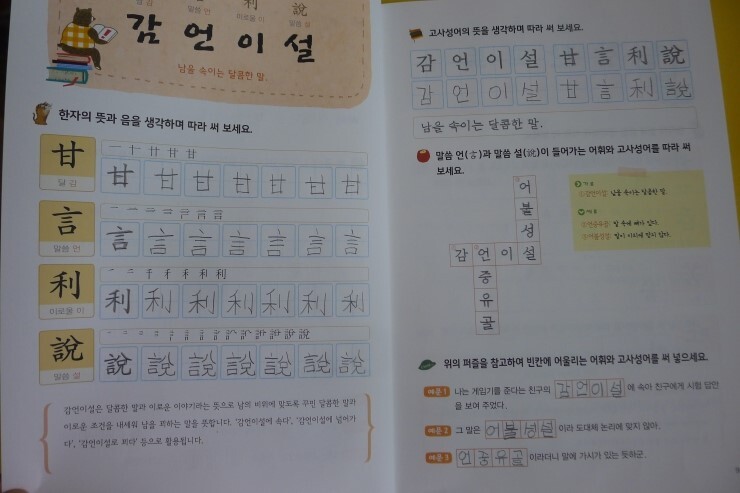 달 감 말씀 언 이로울 이 말씀 설
利 說
감 언 이 설
남을 속이는 달콤한 말.
한자의 뜻과 음을 생각하며 따라 써 보세요.
甘
달 감
一 十 廿 甘 甘
甘 甘 甘 甘 甘 甘 甘
言
말씀 언
言 言 言 言 言 言 言
利
이로울 이
利 利 利 利 利 利 利
說
말씀 설
說 說 說 說 說 說 說
감언이설은 달콤한 말과 이로운 이야기라는 뜻으로 남의 비위에 맞도록 꾸민 달콤한 말과
이로운 조건을 내세워 남을 꾀하는 말을 뜻합니다. '감언이설에 속다', '감언이설에 넘어가
다', '감언이설로 꾀다' 등으로 활용됩니다.
고사성어의 뜻을 생각하며 따라 써 보세요.
감 언 이 설 甘 言 利 說
감 언 이 설 甘 言 利 說
남을 속이는 달콤한 말.
말씀 언(言)과 말씀 설(說)이 들어가는 어휘와 고사성어를 따라 써
보세요.
어
불
성
감 언 이 설
중
유
골
가로
감언이설: 남을 속이는 달콤한 말.
세로
언중유골: 말 속에 뼈가 있다.
어불성설: 말이 이치에 맞지 않다.
위의 퍼즐을 참고하여 빈칸에 어울리는 어휘와 고사성어를 써 넣으세요.
예문 1 나는 게임기를 준다는 친구의 감언이설 에 속아 친구에게 시험 답안
을 보여 주었다.
예문 2 그 말은 어불성설 이라 도대체 논리에 맞지 않아.
예문 3 언중유골 이라더니 말에 가시가 있는 듯하군.